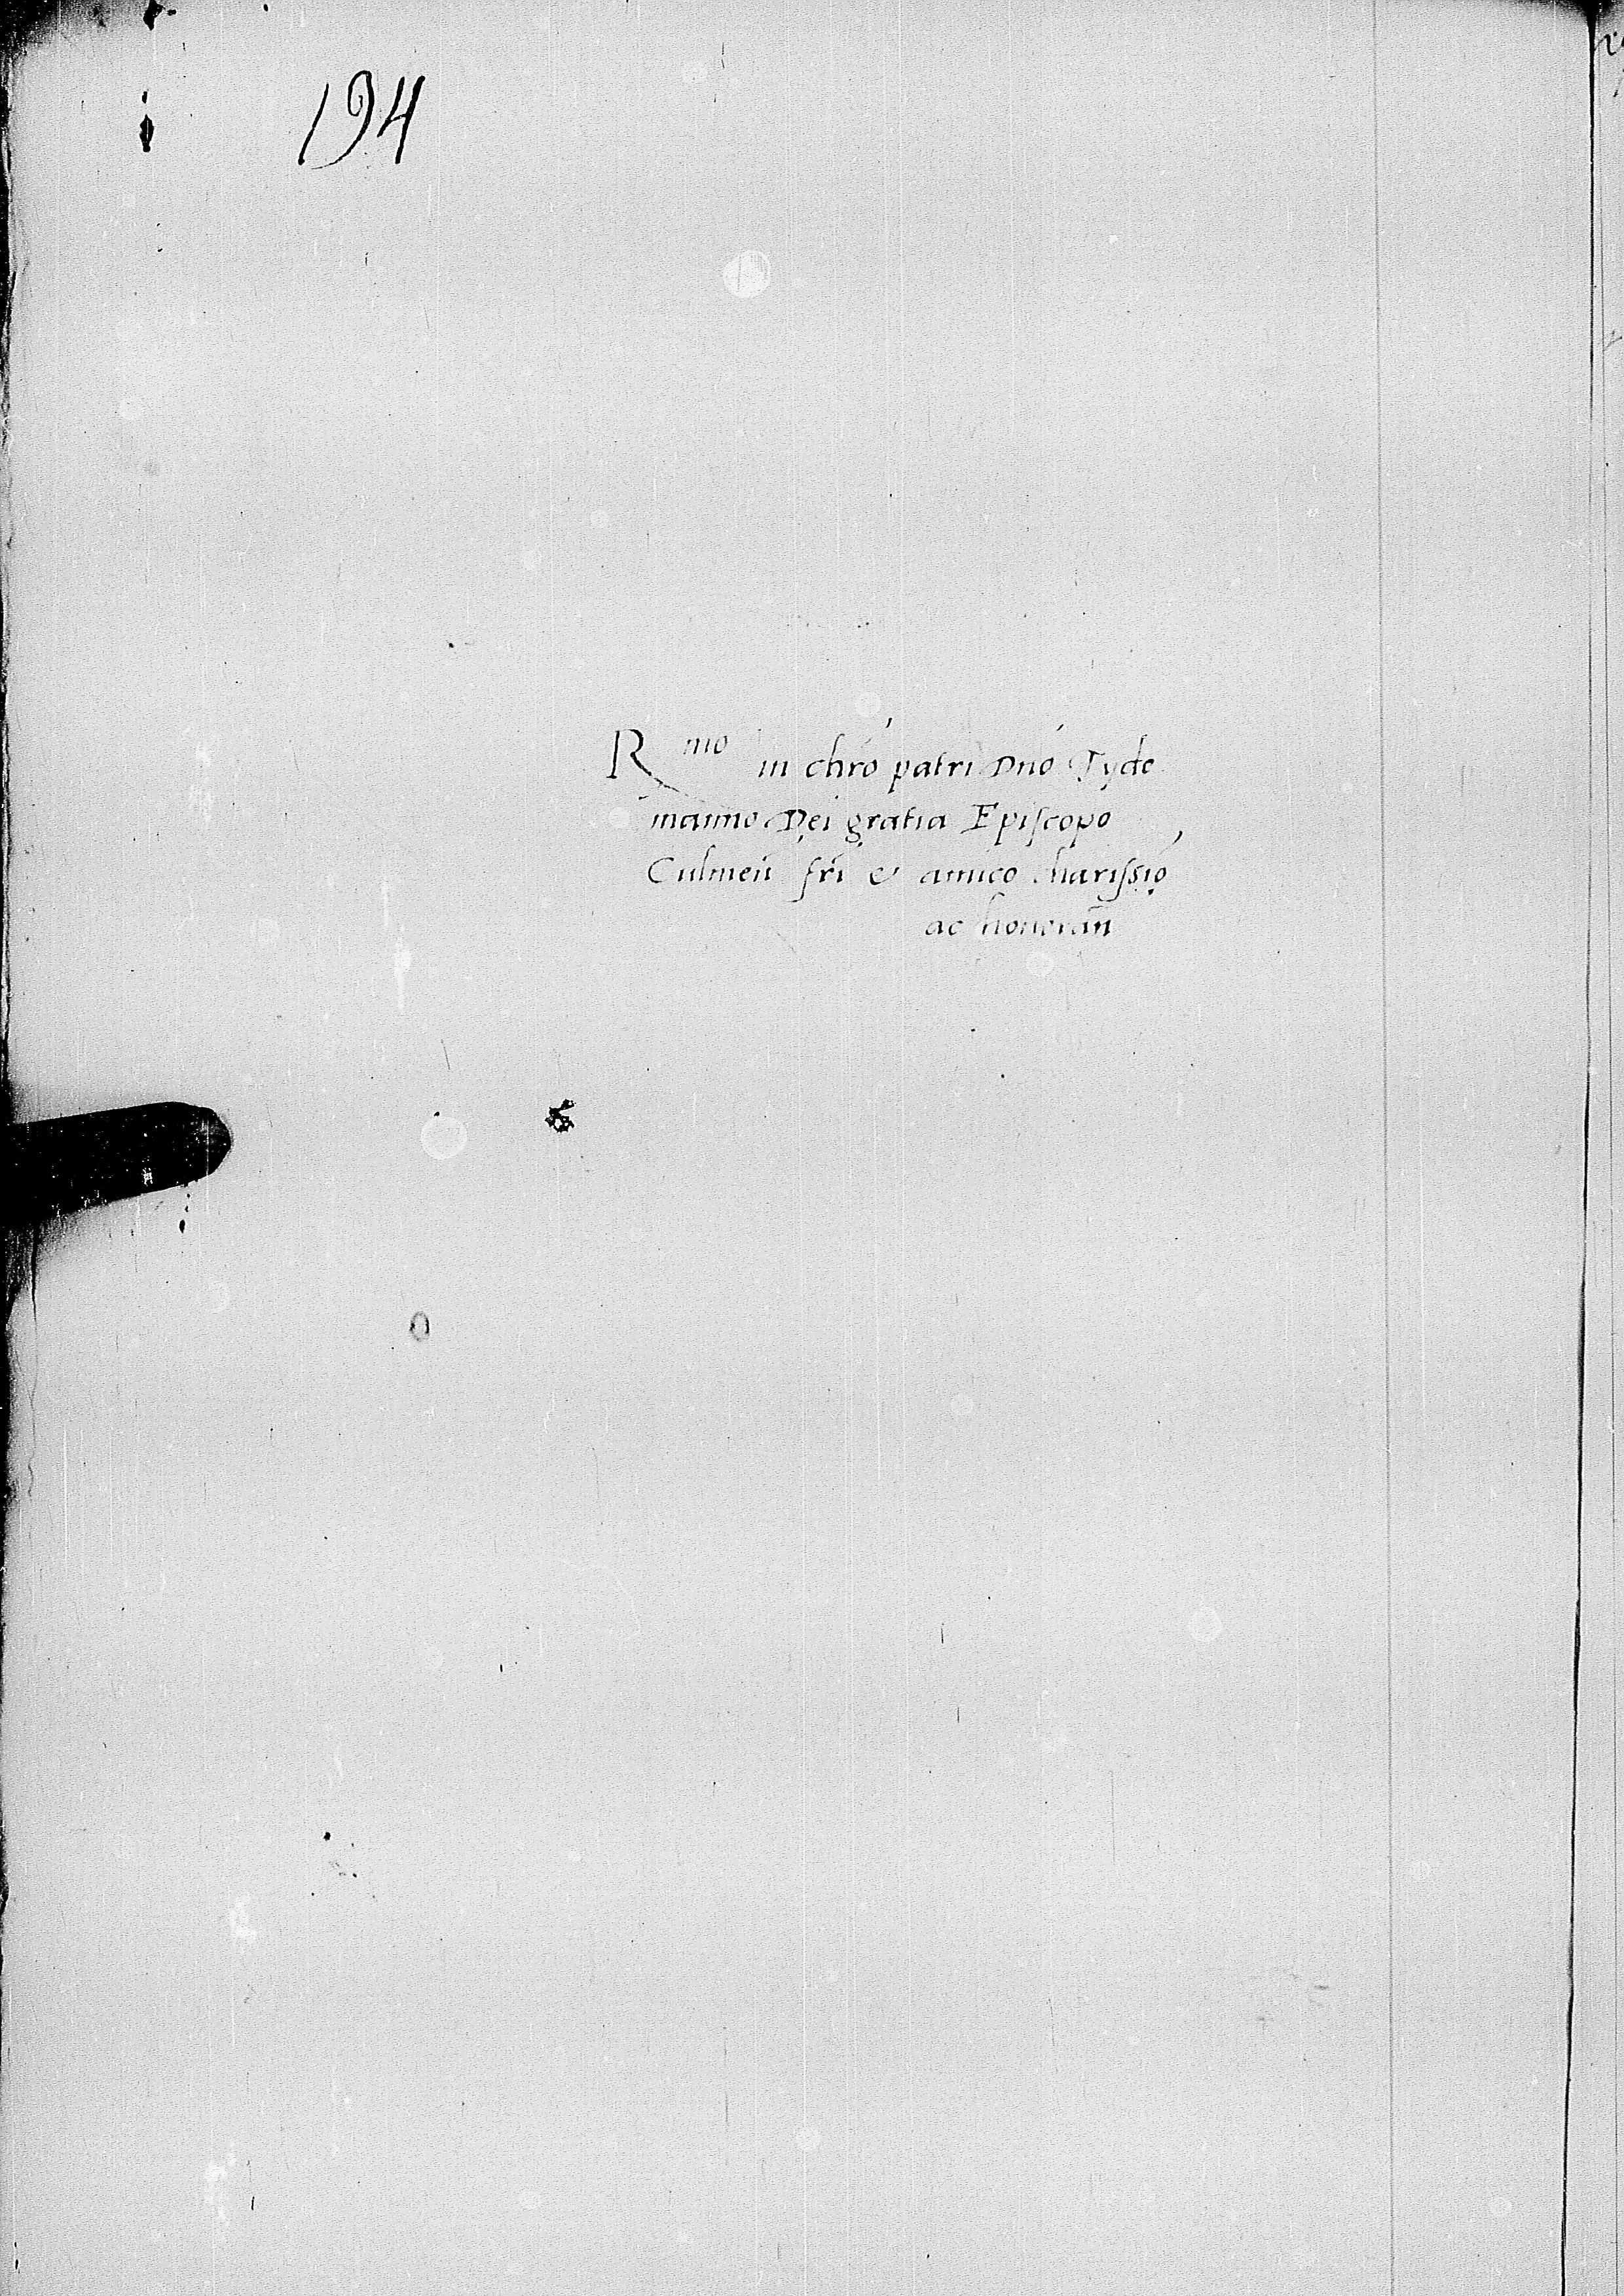 194
Rmo in chro patri Dno Tyde
manno Dei gratia Episcopo
Culmeñ fri & amico charissio
ac honorañ